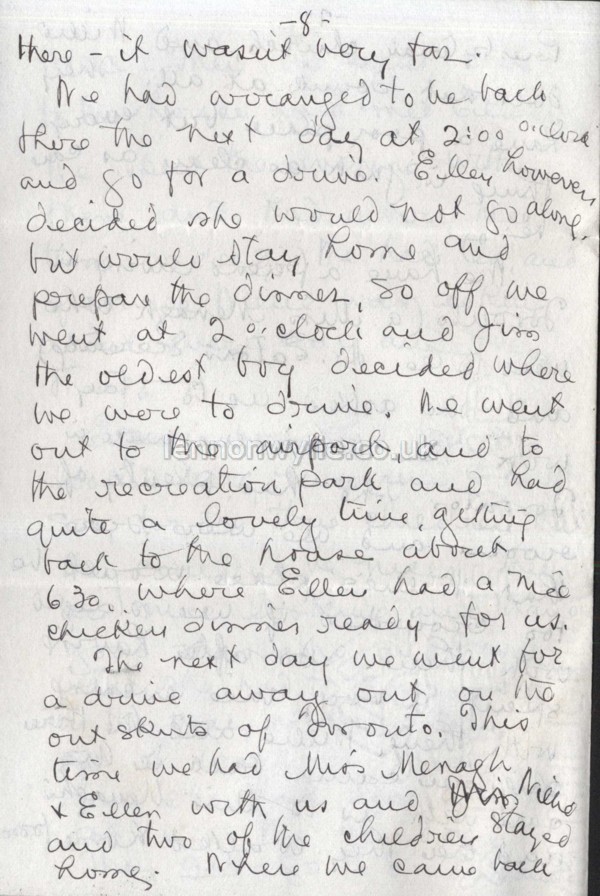 -8-
there - it wasn't very far.
We had arranged to be back
there the next day at 2:00 o'clock
and go for a drive. Ellen however,
decided she would not go along,
but would stay home and
prepare the dinner, so off we
went at 2 o'clock and Jim
the oldest boy decided where
we were to drive. We went
out to the airport, and to
the recreation park and had
quite a lovely time, getting
back to the house about
630, where Ellen had a nice
chicken dinner ready for us.
The next day we went for
a drive away out on the
out skirts of Toronto. This
time we had Miss Menagh
& Ellen with us and stayed
and two of the children
home. When we came back
lennonwylie.co.uk